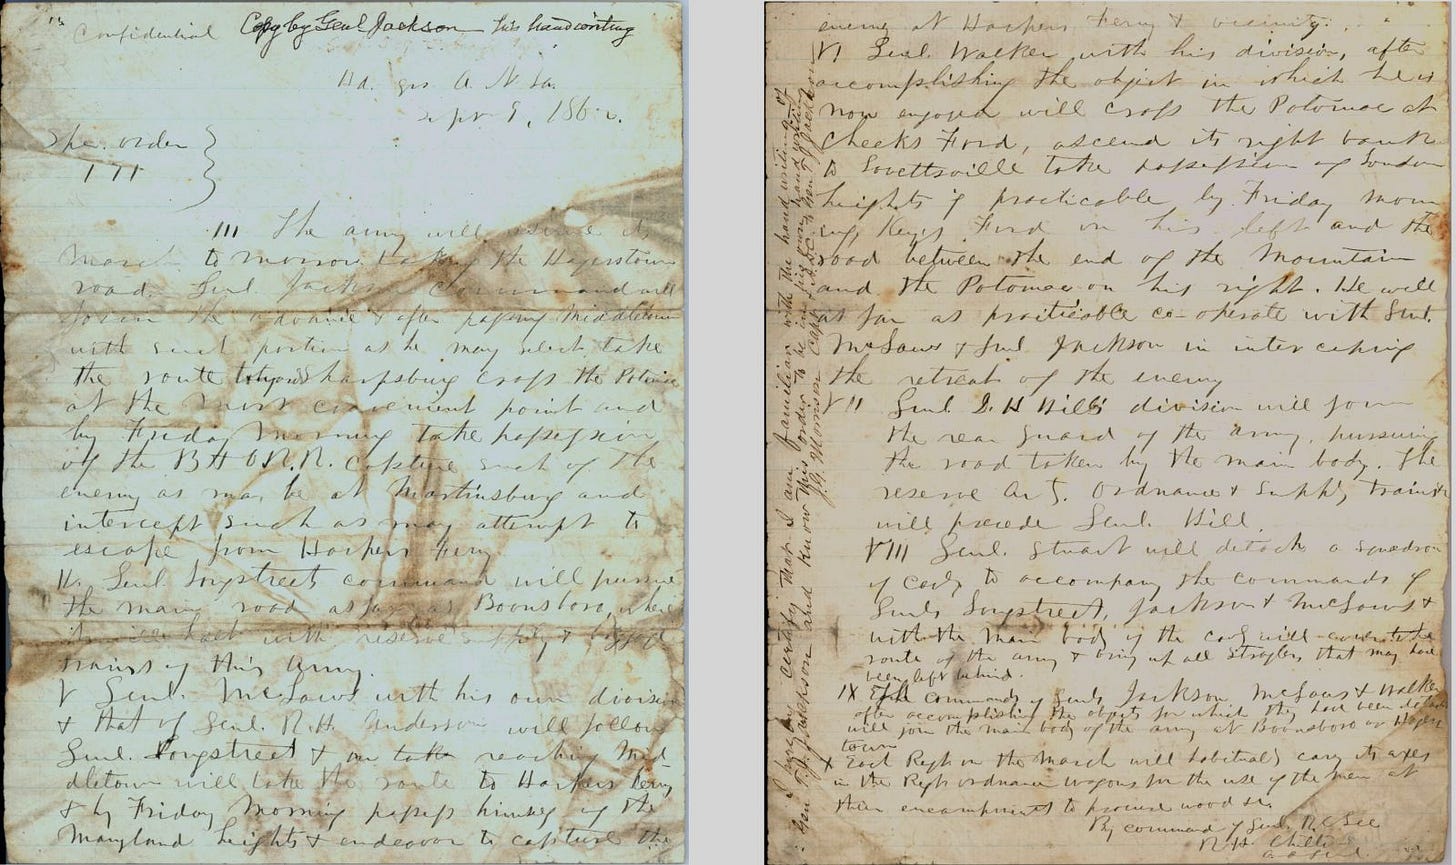 Confidential Copy by Genl Jackson his handwriting
Hd. qrs A. N Va.
Sept 9, 1862.
Spe. order }
191
III The army will resume its
March to morrow taking the Hagerstown
road. Genl Jacksons Command will
form the advance & after passing Middletown
with such portion as he may select, take
the route towards Sharpsburg cross the Potomac
at the most convenient point and
by Friday Morning take possession
of the B & O R. R. Capture such of the
enemy as may be at Martinsburg and
intercept such as may attempt to
escape from Harpers Ferry
IV. Genl Longstreets command will pursue
the main road as far as Boonsboro, where
it will halt with reserve supply & baggage
trains of this army.
V Genl. McLaws with his own division
& that of Genl R. H. Anderson will follow
Genl. Longstreet & on reaching Mid
dletown will take the route to Harpers Ferry
& by Friday Morning possess himself of the
Maryland heights & endeavor to capture the
enemy at Harpers Ferry & vicinity.
VI Genl Walker with his division, after
accomplishing the object in which he is
now engaged will cross the Potomac at
Cheeks Ford, ascend its right bank
to Lovettsville take possession of Loudon
heights if practicable by Friday morn
ing, Keys Ford on his left and the
road between the end of the Mountain
and the Potomac on his right. He will
as far as practicable co-operate with Genl.
McLaws & Genl Jackson in intercepting
the retreat of the enemy
VII Genl D. H Hill's division will form
the rear guard of the army, pursuing
the road taken by the main body. The
reserve Art. Ordnance & Supply trains &c
will precede Genl. Hill.
VIII Genl. Stuart will detach a squadron
of cavy to accompany the commands of
Genls Longstreet, Jackson & McLaws &
with the main body of the cavy will cover the
route of the army & bring up all straglers that may have
been left behind.
IX The commands of Genls Jackson McLaws & Walker
after accomplishing the objects for which they have been detached
will join the main body of the army at Boonsboro or Hagers
town
X Each Regt on the march will habitually cary its axes
in the Regt ordnance wagons for the use of the men at
their encampments to procure wood &c.
By command of Genl. R E Lee
R. H. Chilton
A A Genl
I hereby certify that I am familiar with the hand writing of
Gen T. J. Jackson and know this order to be in his own hand writing
J. G. Morrison Capt & A.D.C. to Gen T J Jackson